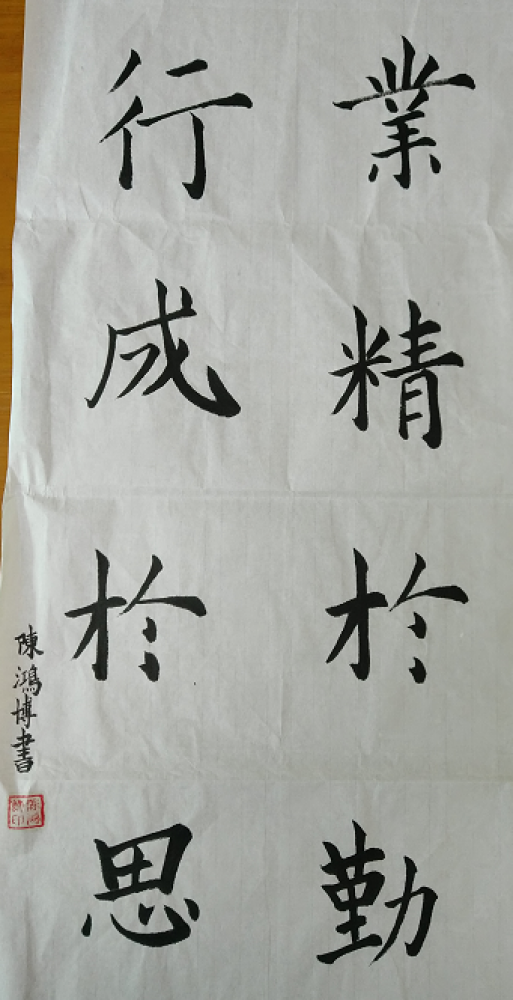 業精於勤
行成於思
陳鴻博書